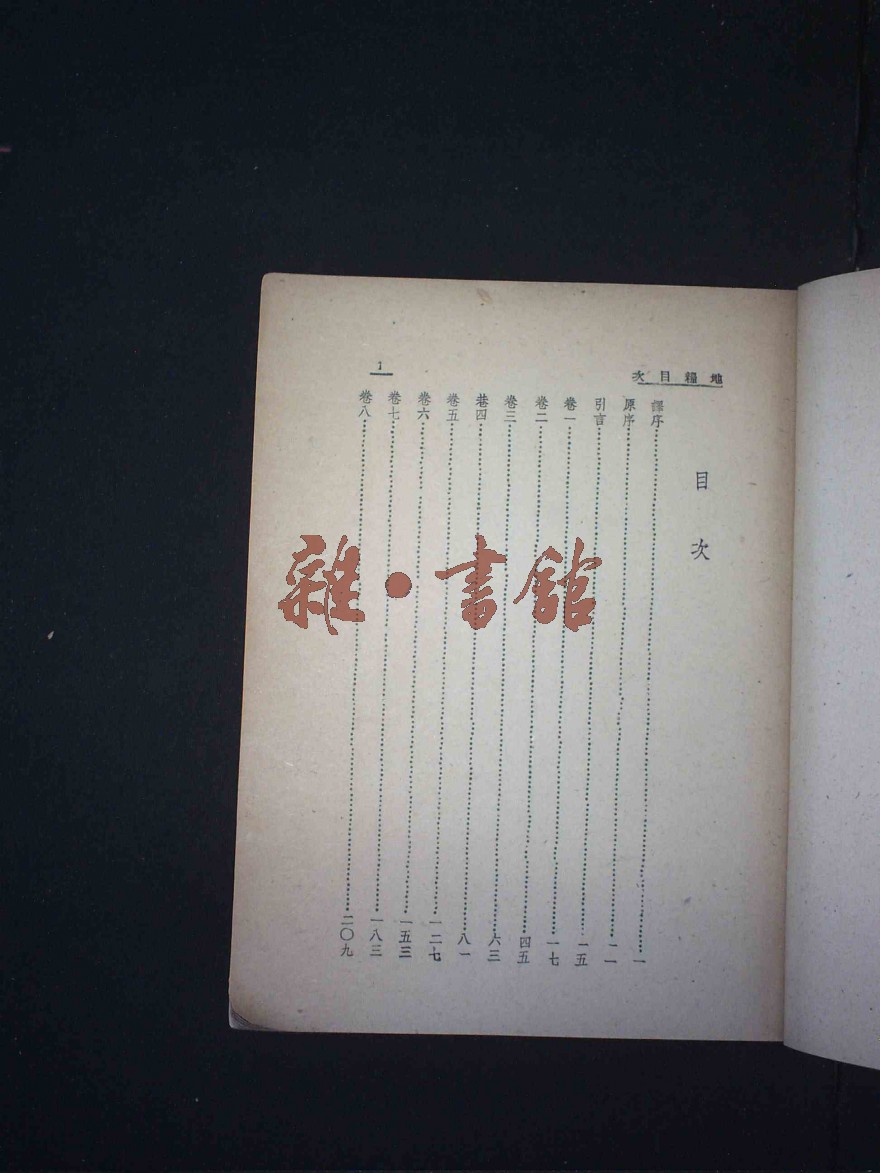 地糧目次
1
目次
譯序……一
原序……一一
引言……一五
卷一……一七
卷二……四五
卷三……六三
卷四……八一
卷五……一二七
卷六……一五三
卷七……一八三
卷八……二〇九
雜·書館